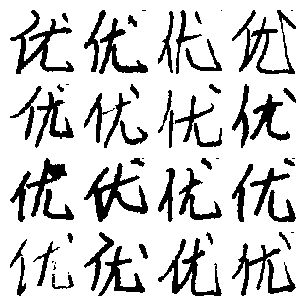 优优优优
优优优优
优优优优
优优优优